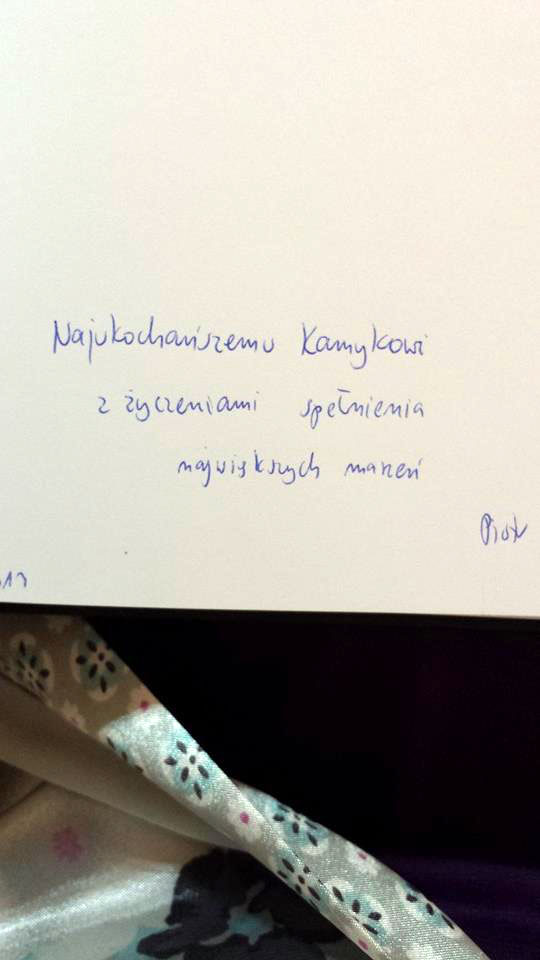 Najukochańszemu Kamykowi
z życzeniami spełnienia
największych marzeń
Piotr
13